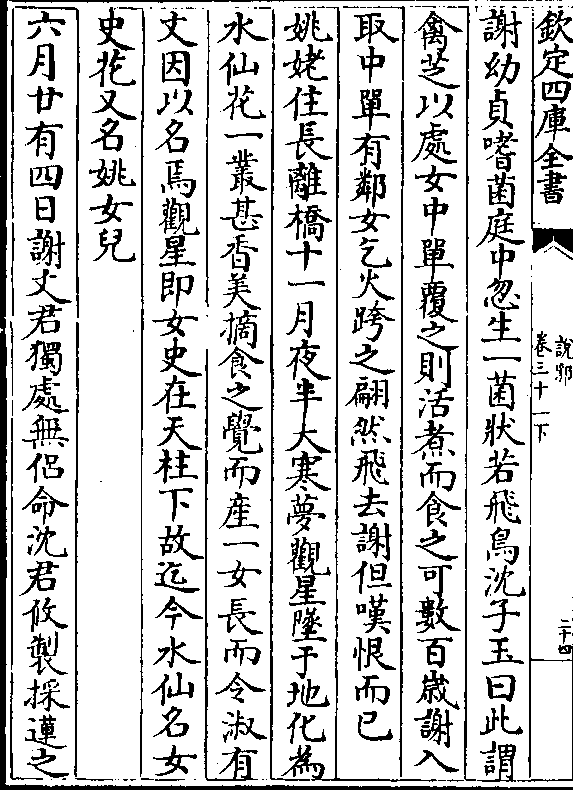 欽定四庫全書
說郛
卷三十一下
二十四
謝幼貞嗜菌庭中忽生一菌狀若飛鳥沈子玉曰此謂
禽芝以處女中單覆之則活煮而食之可數百歲謝入
取中單有鄰女乞火跨之翩然飛去謝但嘆恨而已
姚姥住長離橋十一月夜半大寒夢觀星墜于地化為
水仙花一叢甚香美摘食之覺而産一女長而令淑有
文因以名焉觀星即女史在天柱下故迄今水仙名女
史花又名姚女兒
六月廿有四日謝丈君獨處無侣命沈君攸製採蓮之